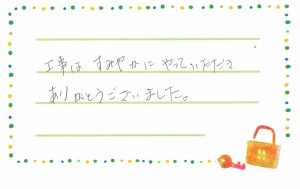 工事は すみやかに やっていただき
ありがとうございました。